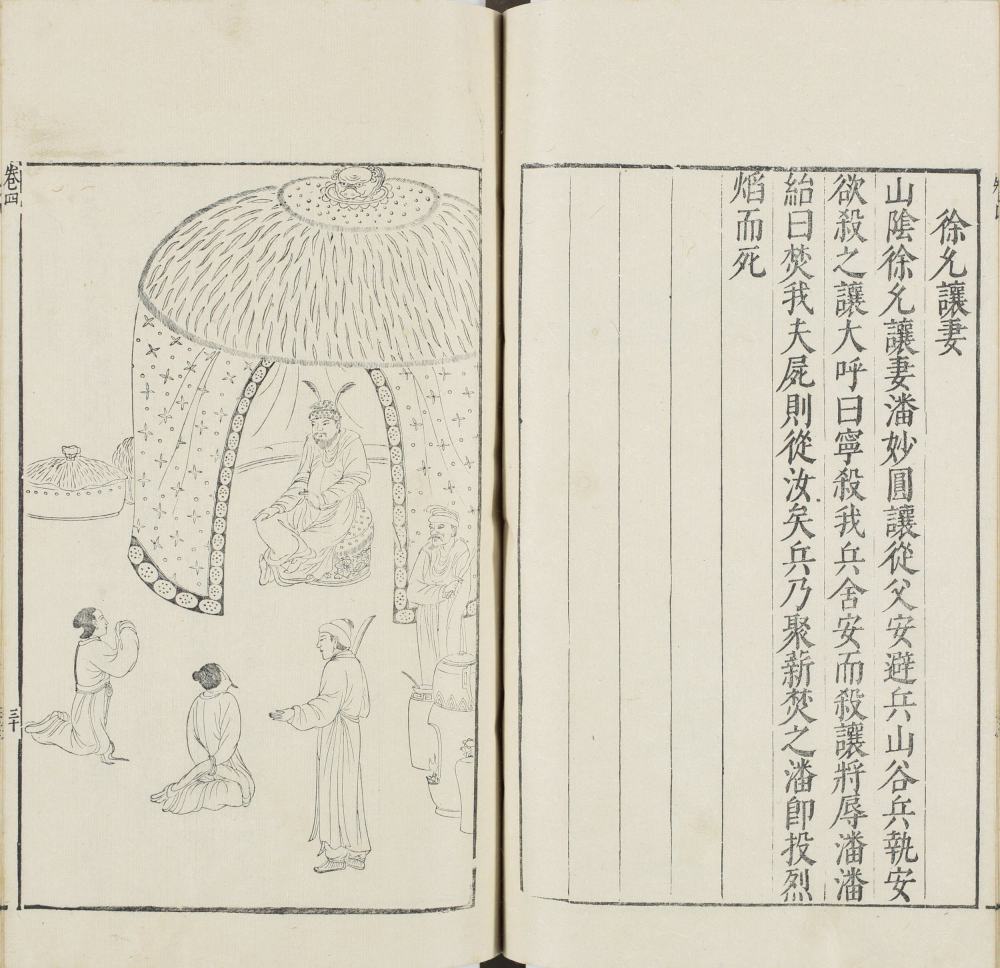 徐允讓妻
山陰徐允讓妻潘妙圓讓從父安避兵山谷兵執安
欲殺之讓大呼曰寧殺我兵舍安而殺讓將辱潘潘
紿曰焚我夫屍則從汝矣兵乃聚薪焚之潘卽投烈
熖而死
卷四
三十